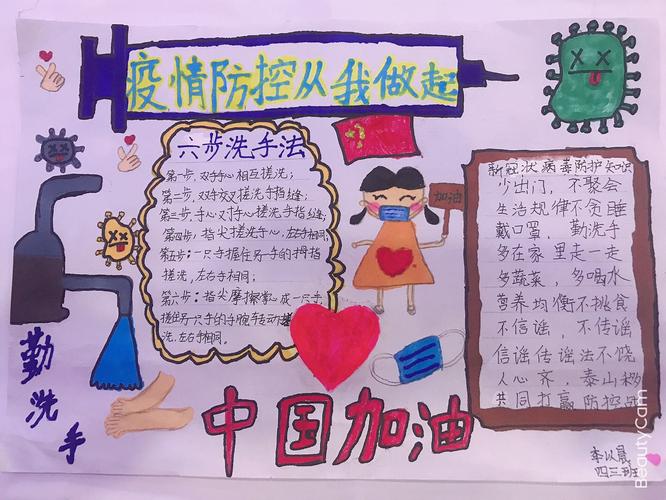 疫情防控从我做起
六步洗手法
第一步，双手心相互搓洗；
第二步，双手交叉搓洗手指缝；
第三步，手心对手心搓洗手指缝；
第四步，指尖搓洗手心，左右手相同；
第五步：一只手握住另一手的拇指
搓洗，左右手相同；
第六步：指尖摩擦掌心或一只手
握住另一只手的手腕转动搓
洗，左右手相同。
加油
新冠状病毒防护知识
少出门，不聚会
生活规律不贪睡
戴口罩 勤洗手
多在家里走一走
多蔬菜，多喝水
营养均衡不挑食
不信谣，不传谣
信谣传谣法不饶
人心齐，泰山移
共同打赢防控
勤洗手
中国加油
李以晨
四三班
BeautyCam